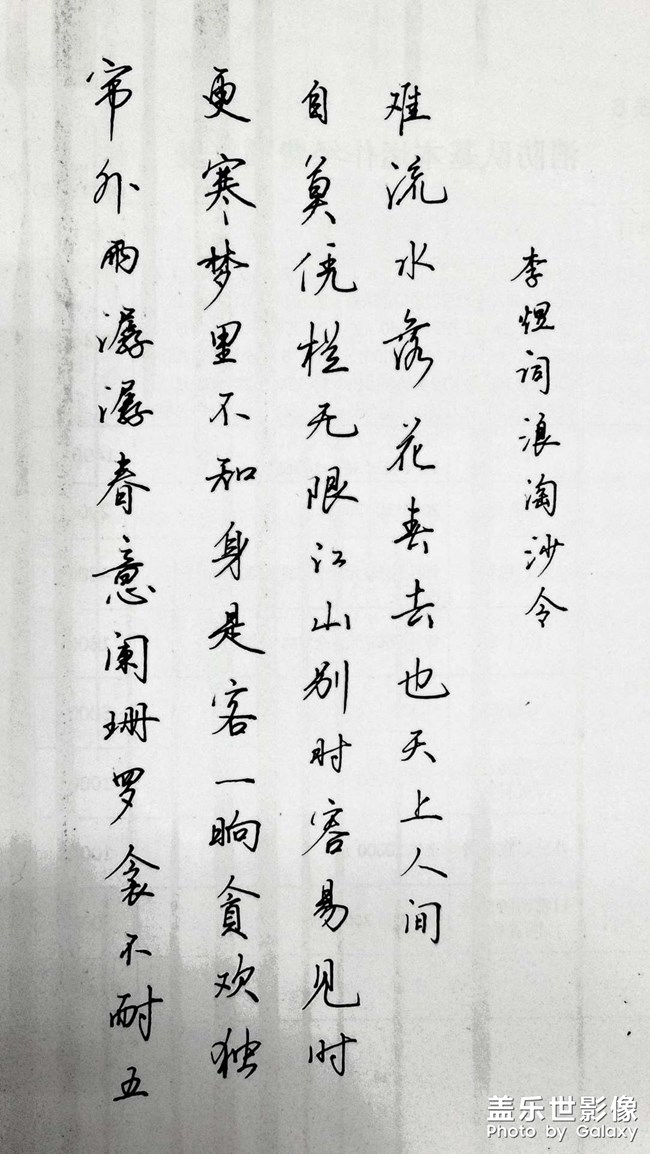 帘外雨潺潺春意阑珊罗衾不耐五
更寒梦里不知身是客一晌贪欢独
自莫凭栏无限江山别时容易见时
难流水落花春去也天上人间
李煜词浪淘沙令
盖乐世影像
Photo by Galaxy